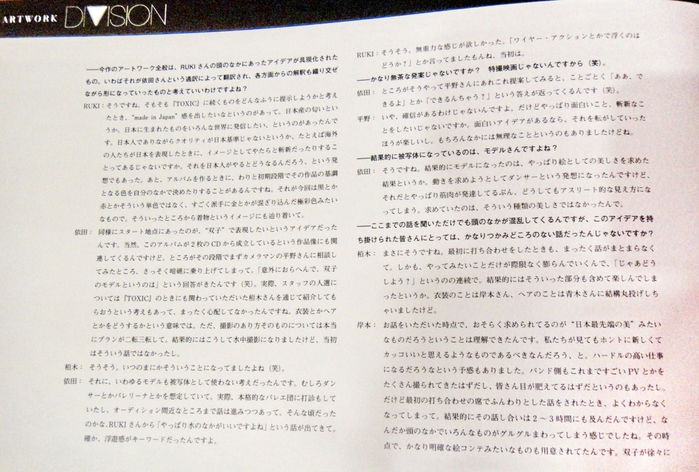 ARTWORK DIVISION
――今作のアートワーク全般は、RUKIさんの頭のなかにあったアイデアが具現化された
もの。いわばそれが依田さんという通訳によって翻訳され、各方面からの解釈も織り交ぜ
ながら形になっていったものと考えていいわけですよね？
RUKI：そうですね。そもそも『TOXIC』に続くものをどんなふうに提示しようかと考え
たとき、"made in Japan" 感を出したいなというのがあって。日本産の匂いとい
うか、日本に生まれたものをいろんな世界に発信したい、というのがあったんで
す。日本人でありながらクオリティが日本基準じゃないというか。たとえば海外
の人たちが日本を表現したときに、イメージとしてやたらと斬新だったりするこ
とってあるじゃないですか。それを日本人がやるとどうなるんだろう、という発
想でもあった。あと、アルバムを作るときに、わりと初期段階でその作品の基調
となる色を自分のなかで決めたりすることがあるんですね。それが今回は黒とか
赤とかそういう単色ではなく、すごく派手に金とかが混ざり込んだ極彩色みたい
なもので。そういったところから着物というイメージにも辿り着いて。
依田：同様にスタート地点にあったのが、"双子" で表現したいというアイデアだった
んです。当然、このアルバムが2枚のCDから成立しているという作品像にも関
連してくるんですけど。ところがその段階でまずカメラマンの平野さんに相談し
てみたところ、さっそく暗礁に乗り上げてしまって。「意外におらへんで、双子
のモデルというのは」という回答がきたんです（笑）。実際、スタッフの人選に
ついては『TOXIC』のときにも関わっていただいた柏木さんを通じて紹介しても
らおうという考えもあって、まったく心配してなかったんですね。衣装とかヘア
とかをどうするかという意味では。ただ、撮影のあり方そのものについては本当
にプランが二転三転して。結果的にはこうして水中撮影になりましたけど、当初
はそういう話ではなかったし。
柏木：そうそう、いつのまにかそういうことになってましたよね（笑）。
依田：それに、いわゆるモデルも被写体として使わない考えだったんです。むしろダン
サーとかバレリーナとかを想定していて。実際、本格的なバレエ団に打診もして
いたし、オーディション間近なところまで話は進みつつあって。そんな頃だった
のかな、RUKIさんから「やっぱり水のなかがいいですよね」という話が出てきて。
確か、浮遊感がキーワードだったんですよ。
RUKI：そうそう。無重力な感じが欲しかった。「ワイヤー・アクションとかで浮くのは
どうか？」とか言ってましたもんね、当初は。
――かなり無茶な発案じゃないですか？　特撮映画じゃないんですから（笑）。
依田：ところがそうやって平野さんにあれこれ提案してみると、ことごとく「ああ、で
きるよ」とか「できるんちゃう？」という答えが返ってくるんです（笑）。
平野：いや、確信があるわけじゃないんですよ。だけどやっぱり面白いこと、斬新なこ
とをしたいじゃないですか。面白いアイデアがあるなら、それを転がしていった
ほうが楽しいし。もちろんなかには無理なことというのもありましたけどね。
――結果的に被写体になっているのは、モデルさんですよね？
依田：そうですね。結果的にモデルになったのは、やっぱり絵としての美しさを求めた
結果というか。動きを求めようとしてダンサーという発想になったんですけど、
それだとやっぱり筋肉が発達してるぶん、どうしてもアスリート的な見え方にな
ってしまう。求めていたのは、そういう種類の美しさではなかったんで。
――ここまでの話を聞いただけでも頭のなかが混乱してくるんですが、このアイデアを持
ち掛けられた皆さんにとっては、かなりつかみどころのない話だったんじゃないですか？
柏木：まさにそうですね。最初に打ち合わせをしたときも、まったく話がまとまらなく
て。しかも、やってみたいことが際限なく膨らんでいくんで、「じゃあどう
しよう？」というのの連続で。結果的にはそういった部分も含めて楽しんでしま
ったというか。衣装のことは岸本さん、ヘアのことは青木さんに結構丸投げしち
ゃいましたけど。
岸本：お話をいただいた時点で、おそらく求められてるのが "日本最先端の美" みたい
なものだろうということは理解できたんです。私たちが見てもホントに新しくて
カッコいいと思えるようなものであるべきなんだろうな、と。ハードルの高い仕事
になるだろうなという予感もありました。バンド側もこれまですごいPVとかを
たくさん撮られてきたはずだし、皆さん目が肥えてるはずだというのもあったし。
だけど最初の打ち合わせの席でふんわりとした話をされたとき、よくわからなく
なってしまって。結果的にその話し合いは2～3時間にも及んだんですけど、な
んだか頭のなかでいろんなものがグルグルまわってしまう感じでしたね。その時
点で、かなり明確な絵コンテみたいなものも用意されてたんです。双子が徐々に